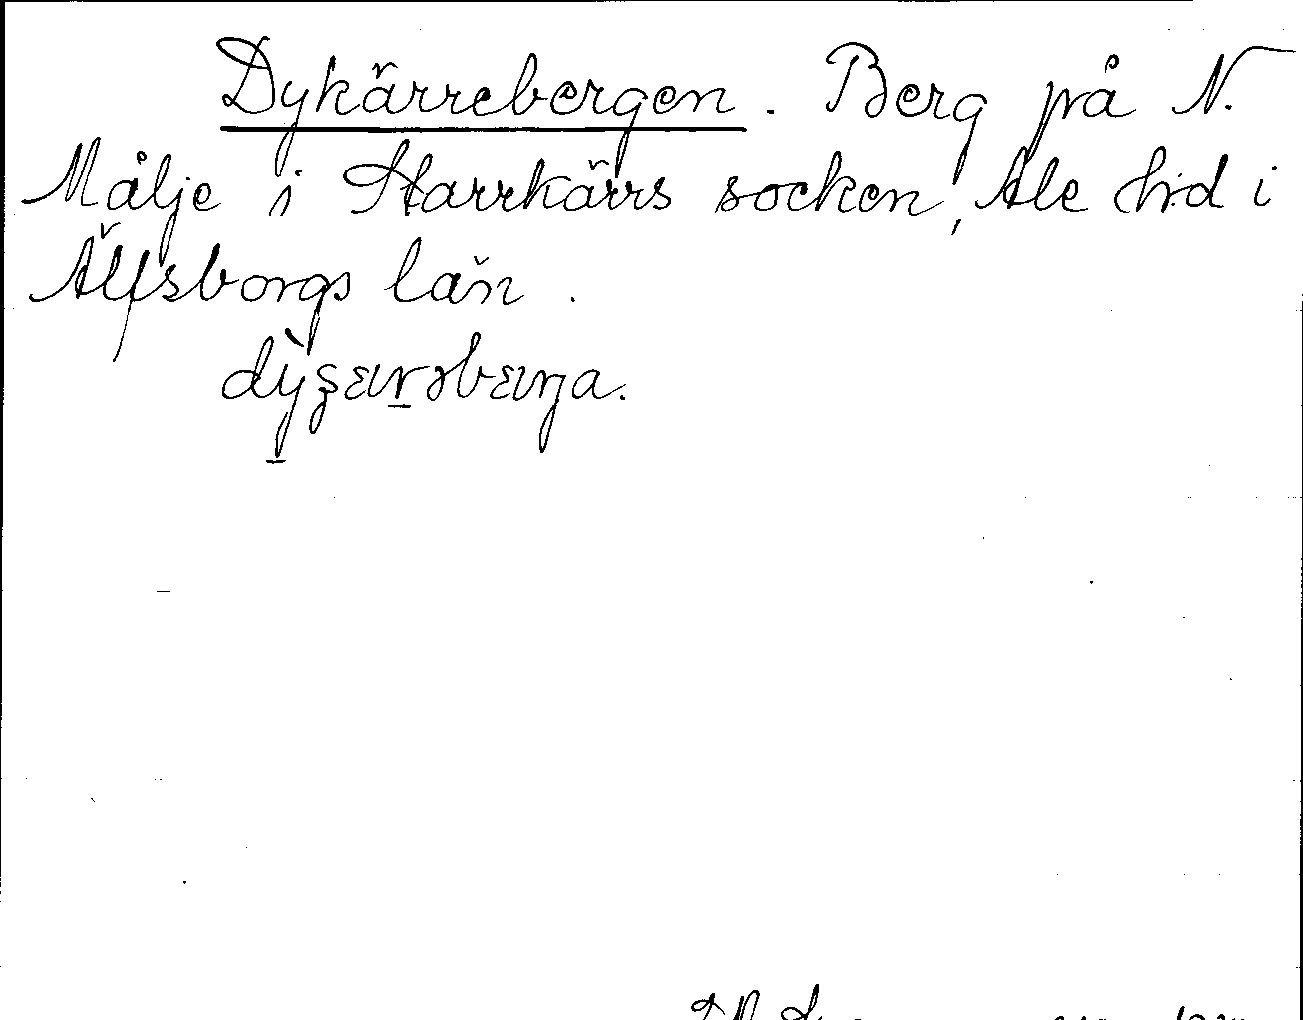 Dykärrebergen. Berg på N.
Målje i Starrkärrs socken, Ale hd i
Älfsborgs län.